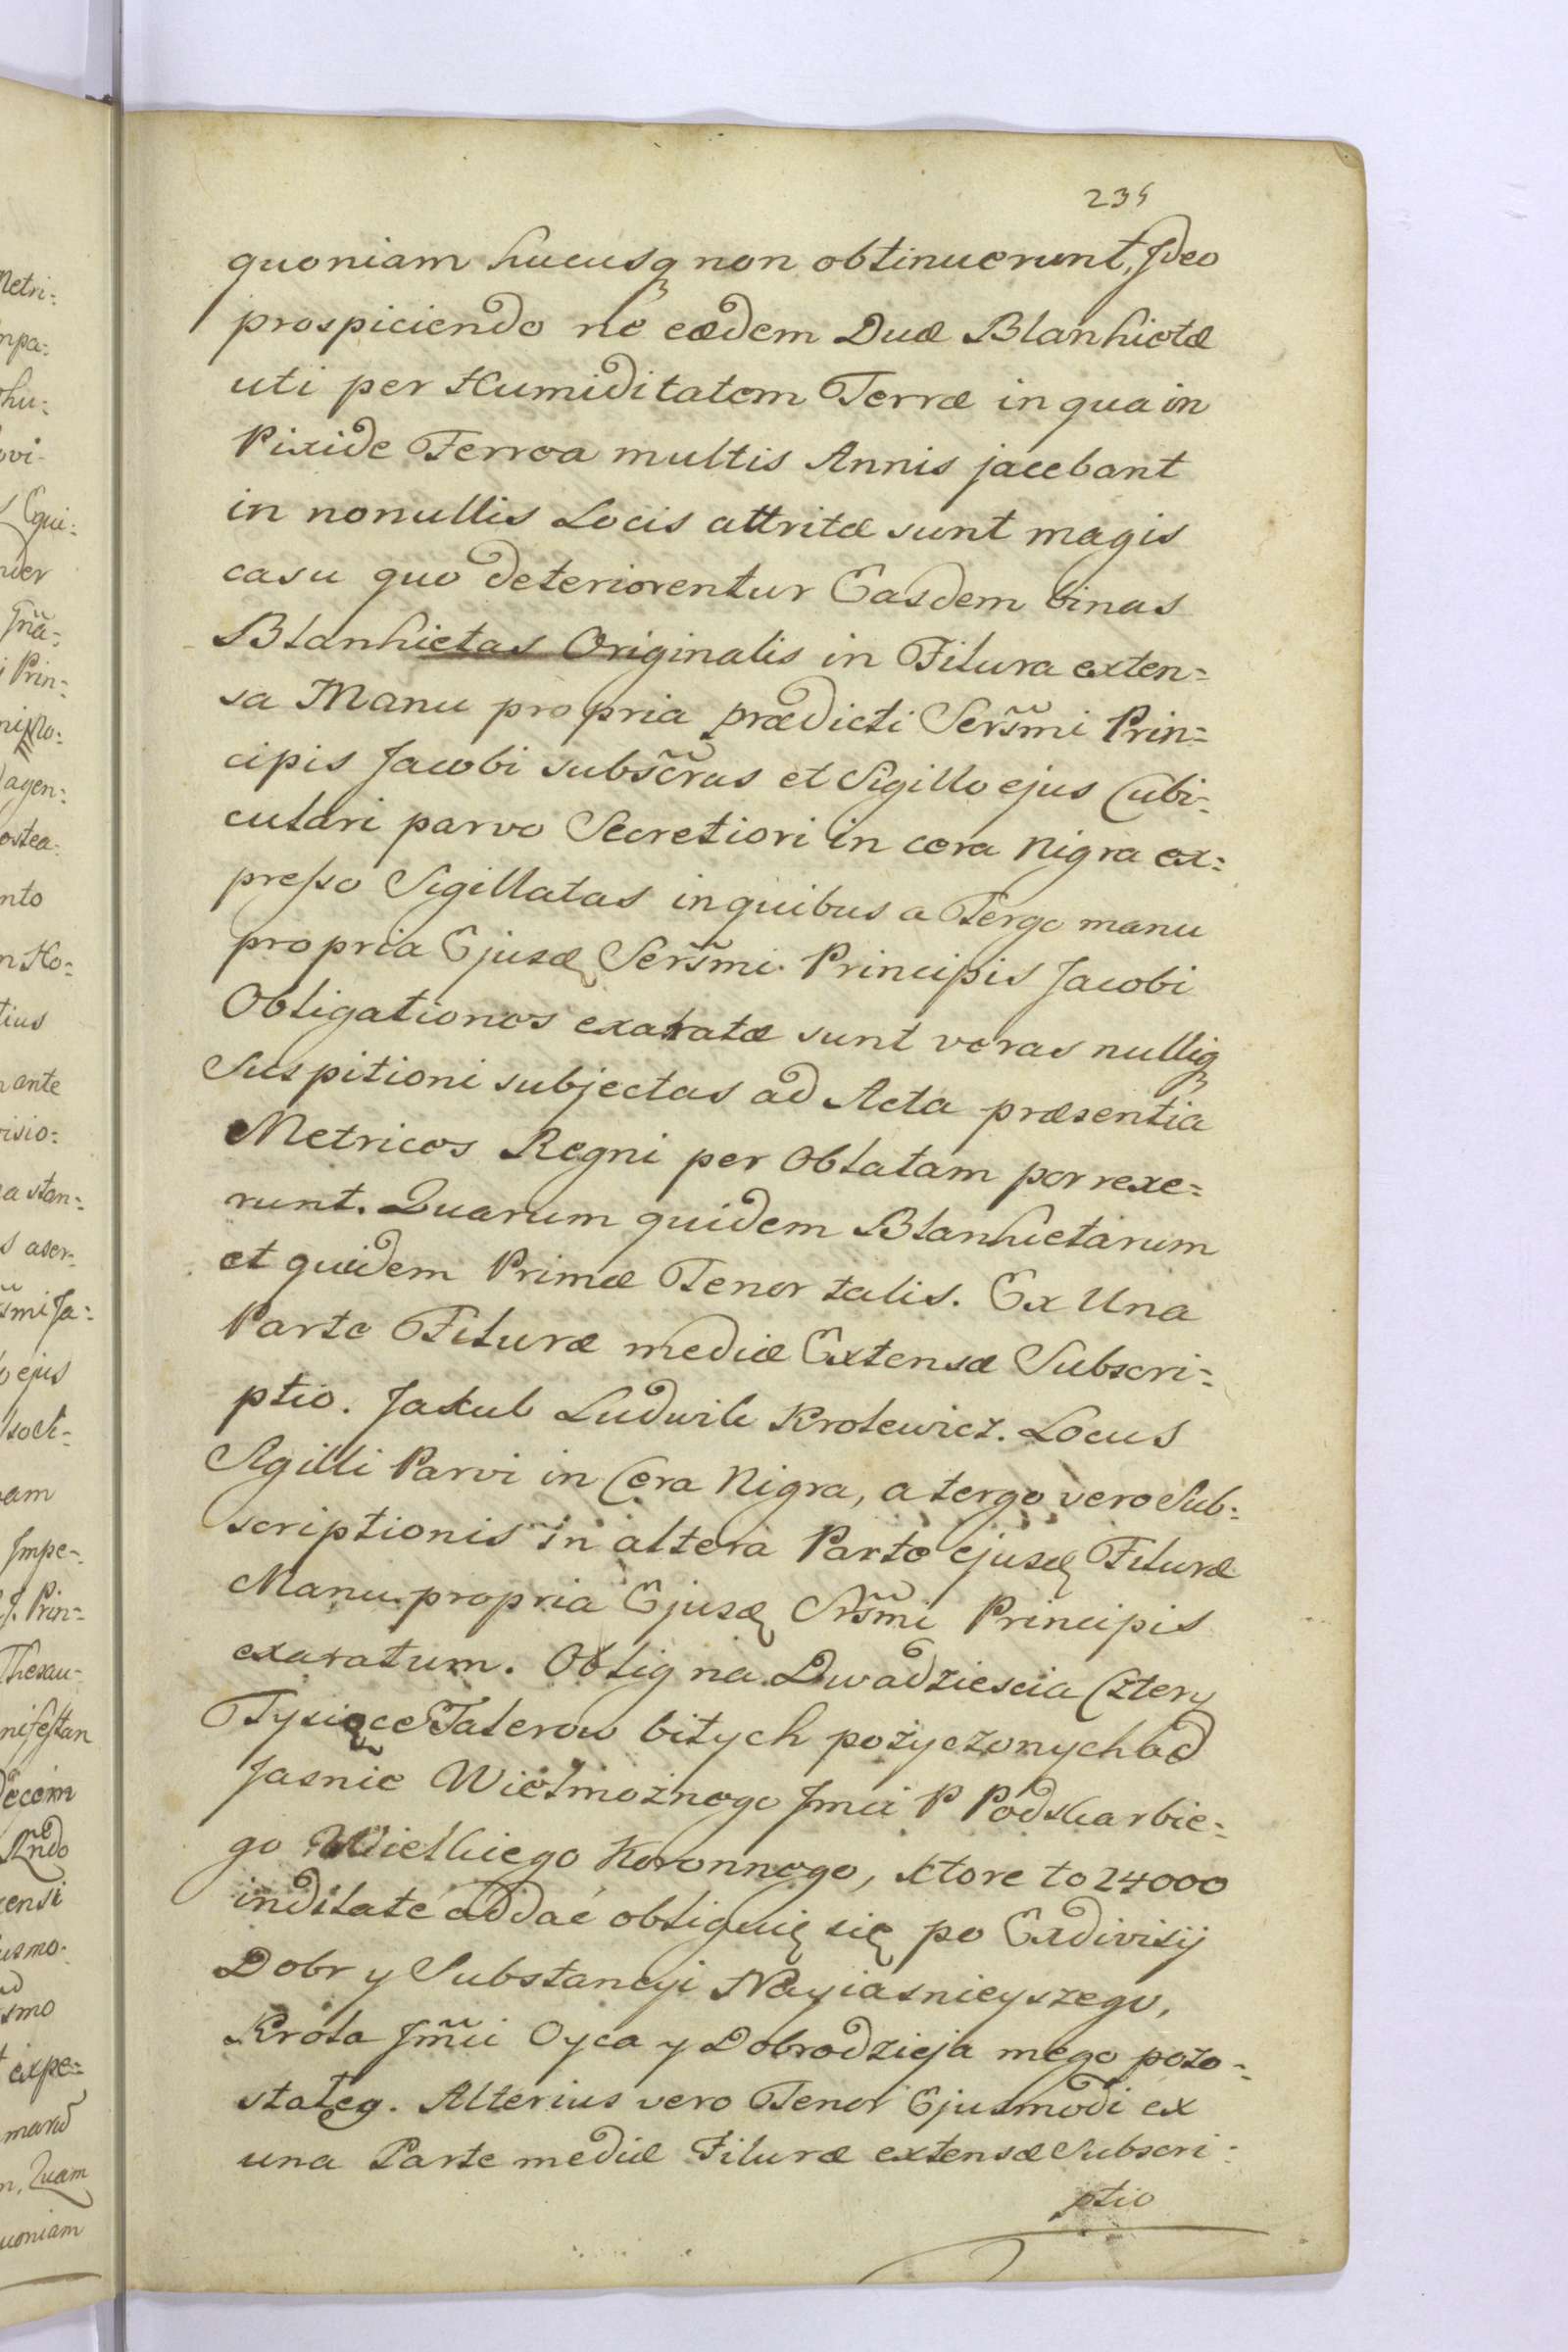 235
quoniam hucusq non obtinuerunt, Ideo
prospiciendo ne eædem Duæ Blanhietæ
uti per Humiditatem Terræ in qua in
Pixide Ferrea multis Annis jacebant
in nonullis Locis attritæ sunt magis
casu quo deteriorentur Easdem binas
Blanhietas Originalis in Filura exten=
sa Manu propria prædicti Serssmi Prin=
cipis Jacobi subscras et Sigillo ejus Cubi=
culari parvo Secretiori in cera Nigra ex=
presso Sigillatas in quibus a Tergo manu
propria Ejusd Serssmi Principis Jacobi
Obligationes exaratæ sunt veras nulliq
Suspitioni subjectas ad Acta præsentia
Metrices Regni per Oblatam porrexe=
runt. Quarum quidem Blanhietarum
et quidem Primæ Tenor talis. Ex Una
Parte Filuræ mediæ Extensæ Subscri=
ptio. Jakub Ludwik Krolewicz. Locus
Sigilli Parvi in Cera Nigra, a tergo vero Sub=
scriptionis in altera Parte ejusd Filuræ
Manu propria Ejusd Srssmi Principis
exaratum. Oblig na Dwadziescia Cztery
Tysiące Talerow bitych pożyczonych od
Jasnie Wielmożnego Jmci P Podskarbie=
go Wielkiego Koronnego, ktore to 24000
indilaté oddać obliguię się po Exdivisij
Dobr y Substancyi Nayiasnieyszego,
Krola Jmci Oyca y Dobrodzieja mego pozo=
stałeg. Alterius vero Tenor Ejusmodi ex
una Parte mediæ Filuræ extensæ Subscri=
ptio